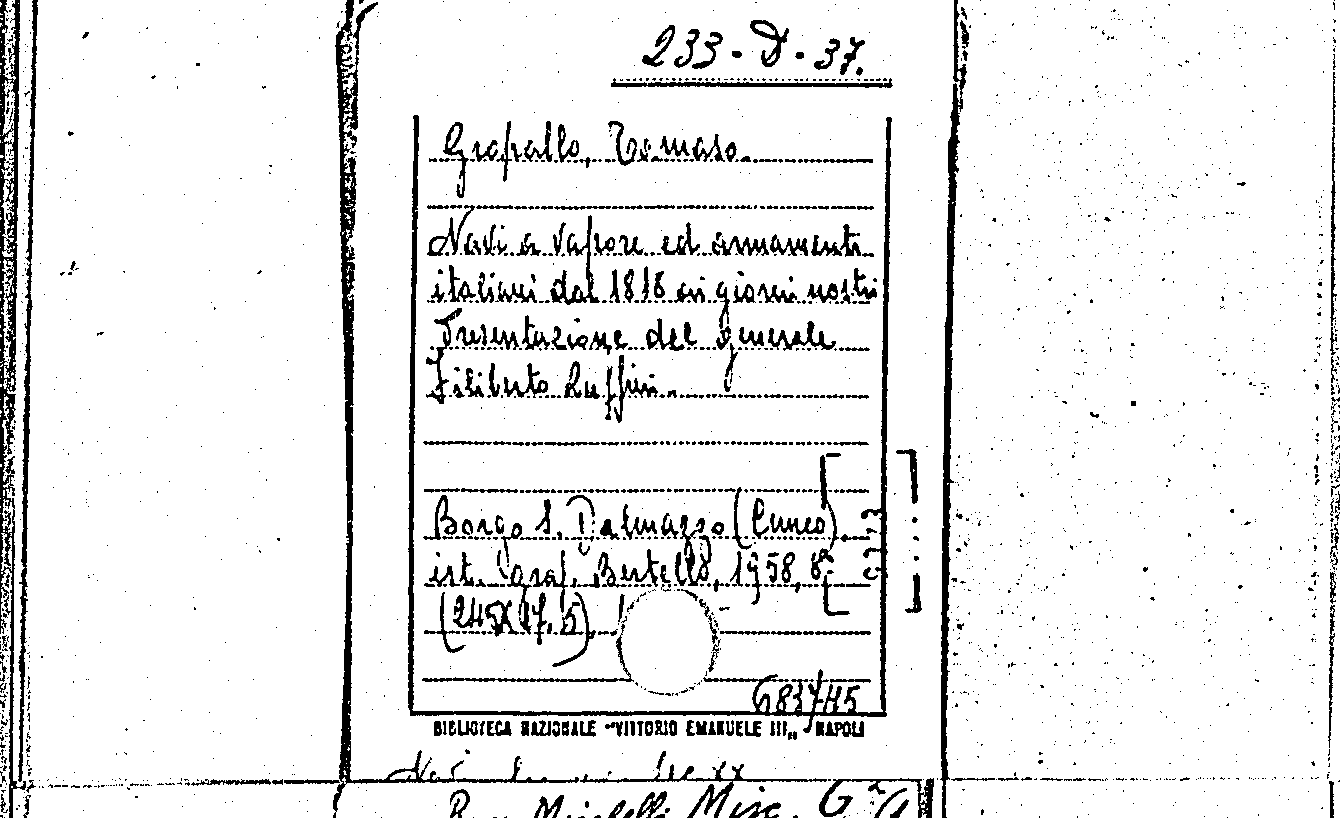 233-D-37.
Gropallo, Tomaso.
Navi a vapore ed armamenti
italiani dal 1818 ai giorni nostri
Presentazione del generale
Filiberto Ruffini.
Borgo S. Dalmazzo (Cuneo),
ist. graf. Bertello, 1958, 8°
(245X17.5).
683745
BIBLIOTECA NAZIONALE "VITTORIO EMANUELE III„ - NAPOLI
Misc.